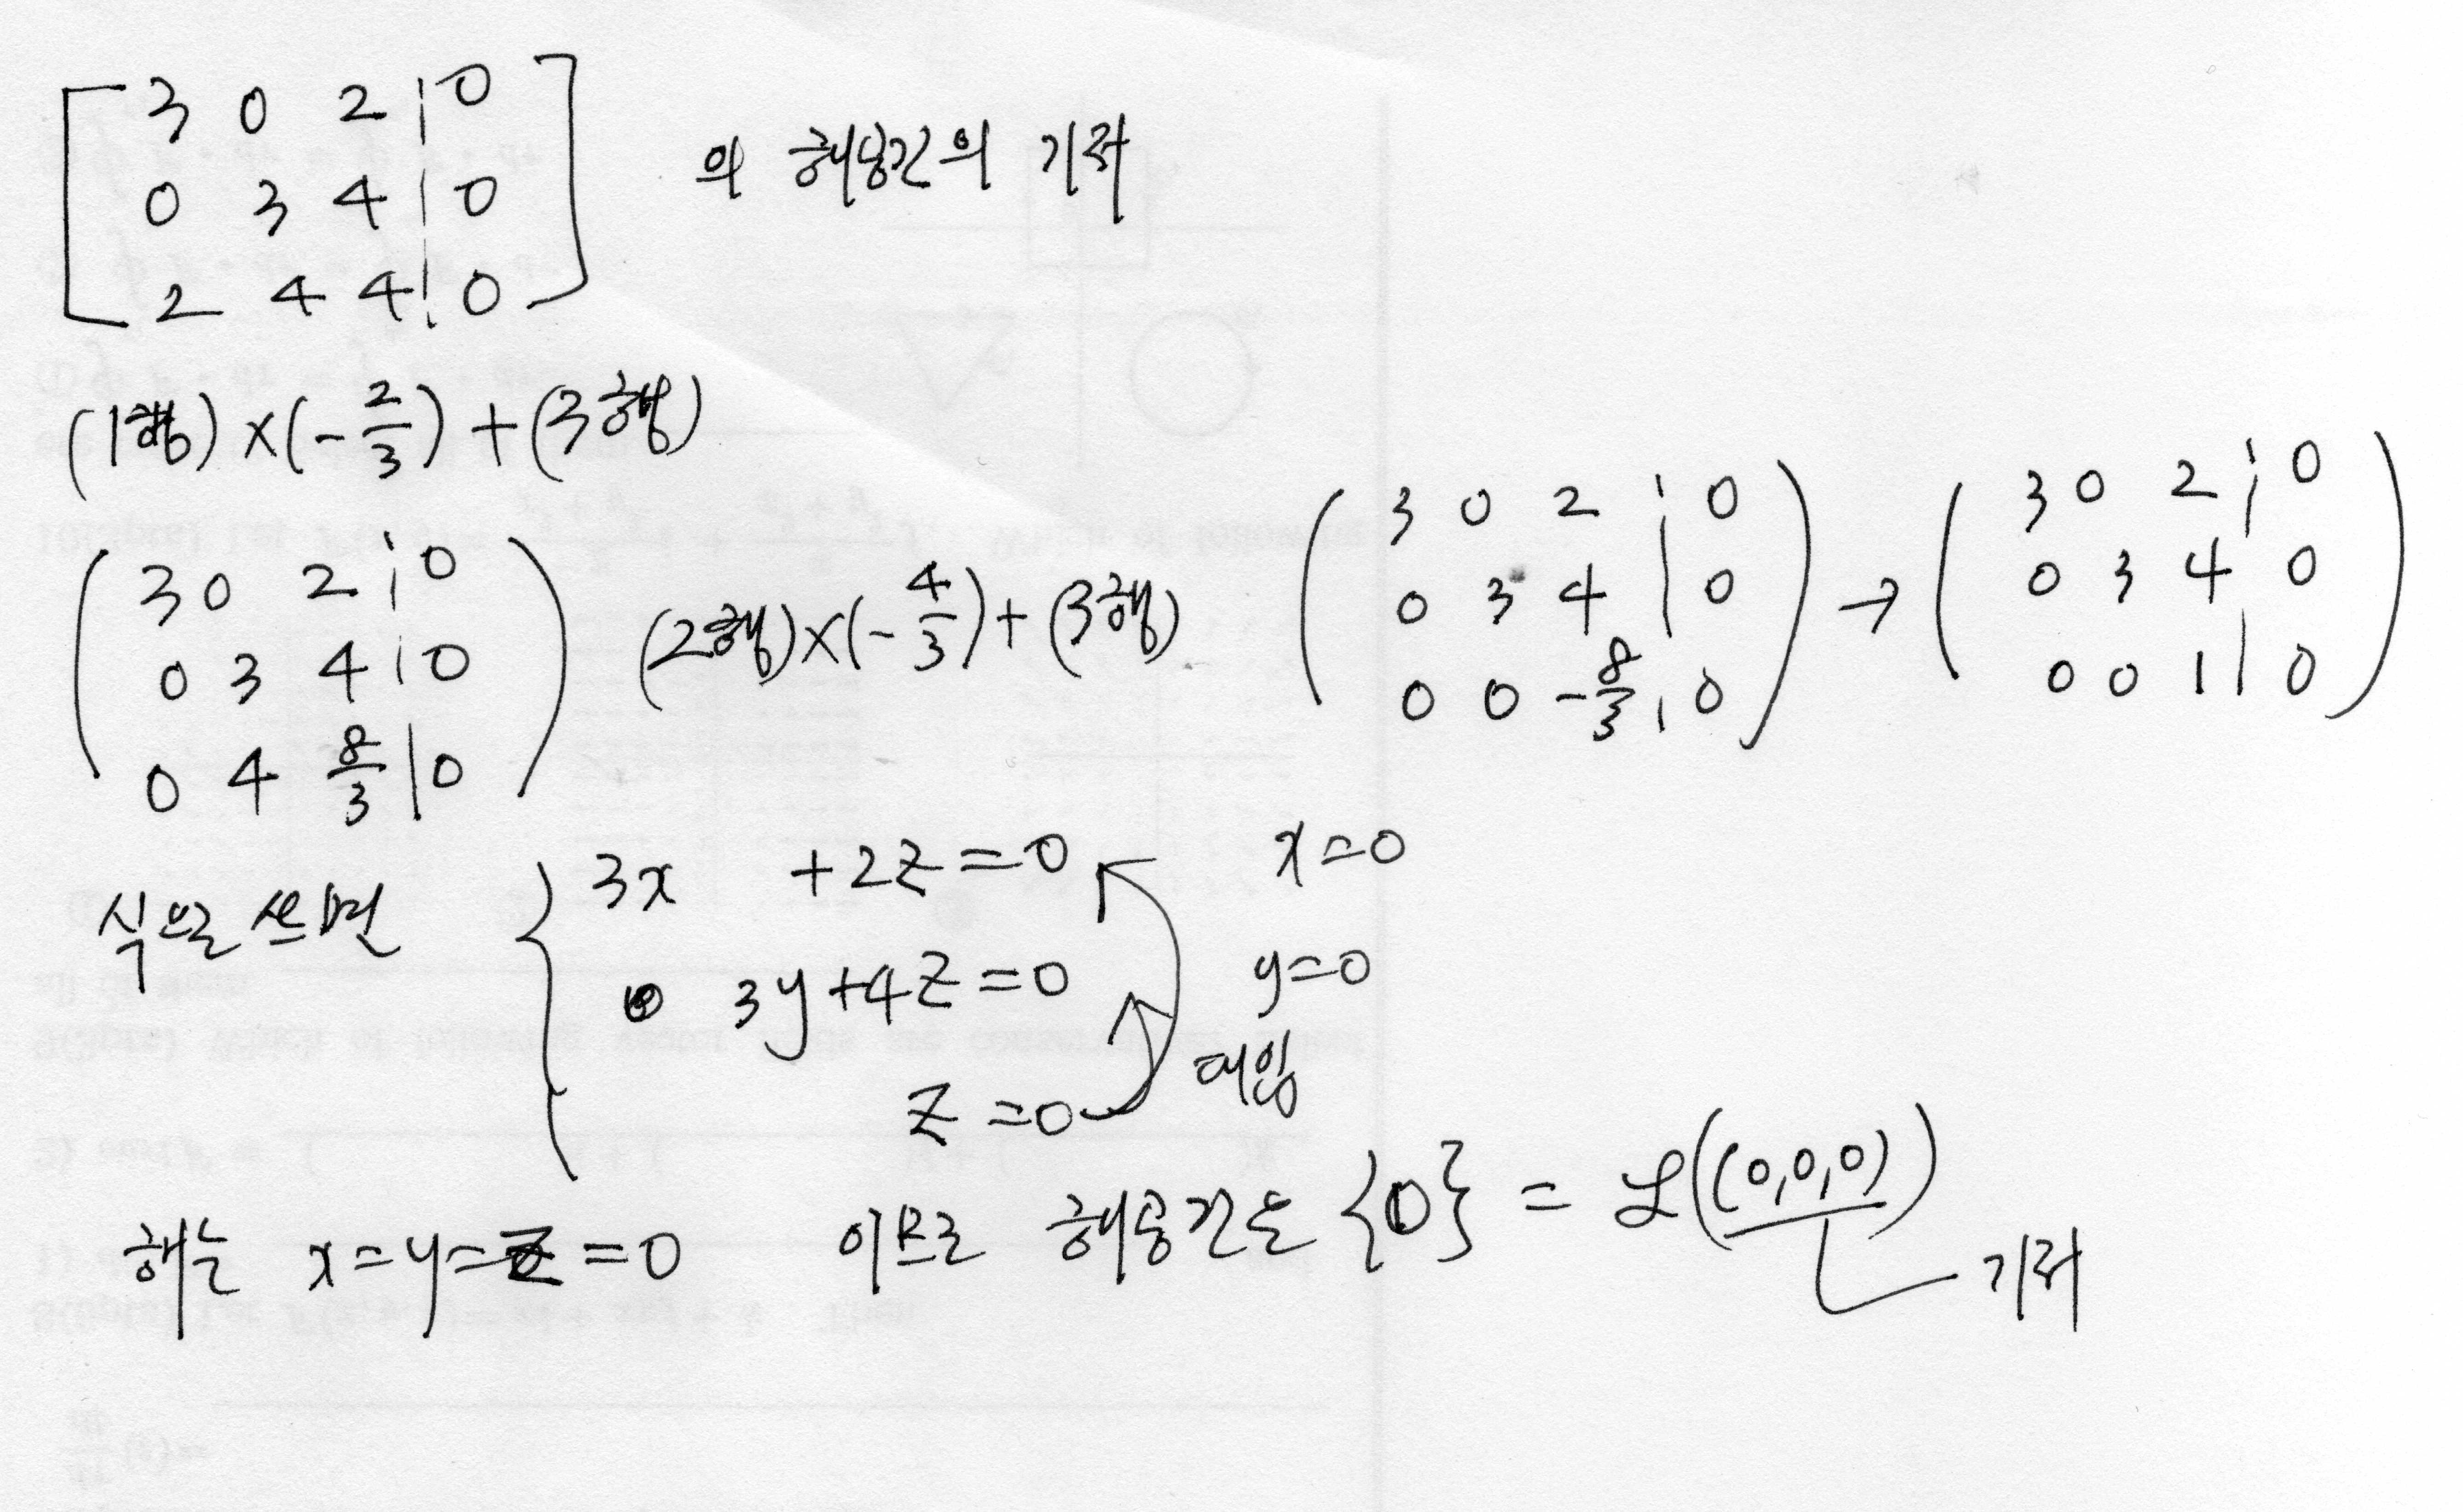 [ 3 0 2 | 0
0 3 4 | 0 의 해공간의 기저
2 4 4 | 0 ]
(1행)×(-2/3)+(3행)
( 3 0 2 | 0
0 3 4 | 0
0 4 8/3 | 0 )
(2행)×(-4/3)+(3행)
( 3 0 2 | 0
0 3 4 | 0
0 0 -8/3 | 0 )
→
( 3 0 2 | 0
0 3 4 0
0 0 1 | 0 )
식으로 쓰면
3x +2z=0 x=0
3y+4z=0 y=0
z=0 대입
해는 x=y=z=0 이므로 해공간은 {0} = ℒ((0,0,0))
기저